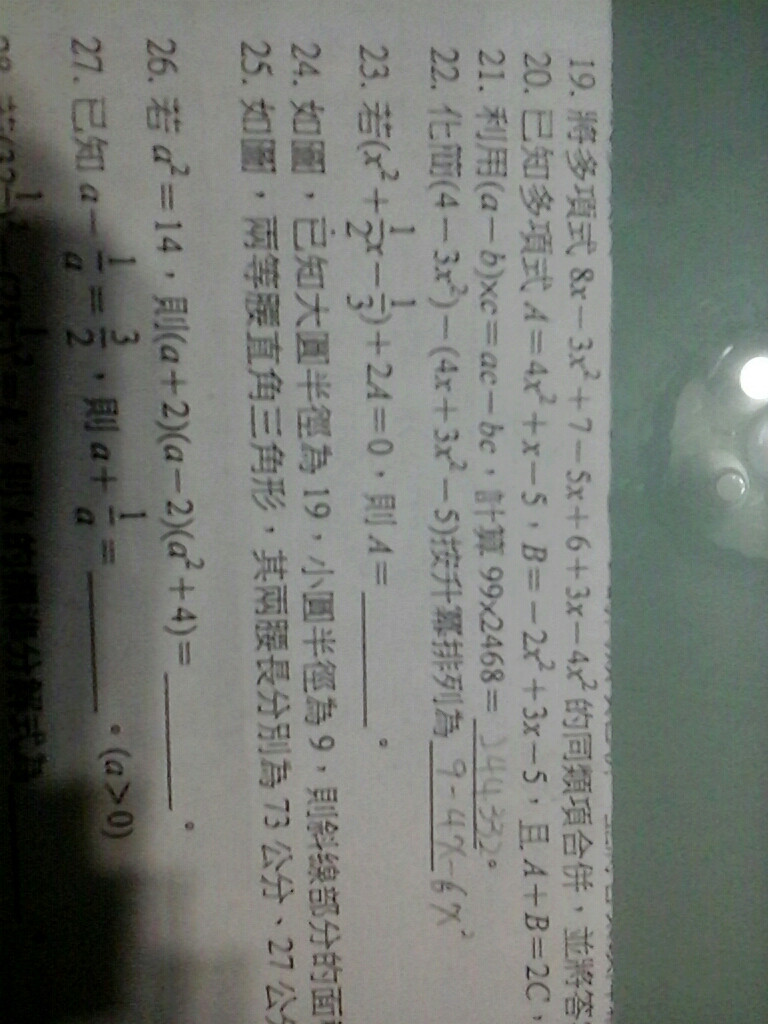 19. 將多項式 8x－3x²＋7－5x＋6＋3x－4x² 的同類項合併，並將答
20. 已知多項式 A＝4x²＋x－5，B＝－2x²＋3x－5，且 A＋B＝2C，
21. 利用(a－b)×c＝ac－bc，計算 99×2468＝244332。
22. 化簡(4－3x²)－(4x＋3x²－5)按升冪排列為 9-4x-6x²
23. 若(x²＋1/2x－1/3)＋2A＝0，則 A＝______。
24. 如圖，已知大圓半徑為 19，小圓半徑為 9，則斜線部分的面
25. 如圖，兩等腰直角三角形，其兩腰長分別為 73 公分、27 公分
26. 若 a²＝14，則(a＋2)(a－2)(a²＋4)＝______。
27. 已知 a－1/a＝3/2，則 a＋1/a＝______。(a＞0)